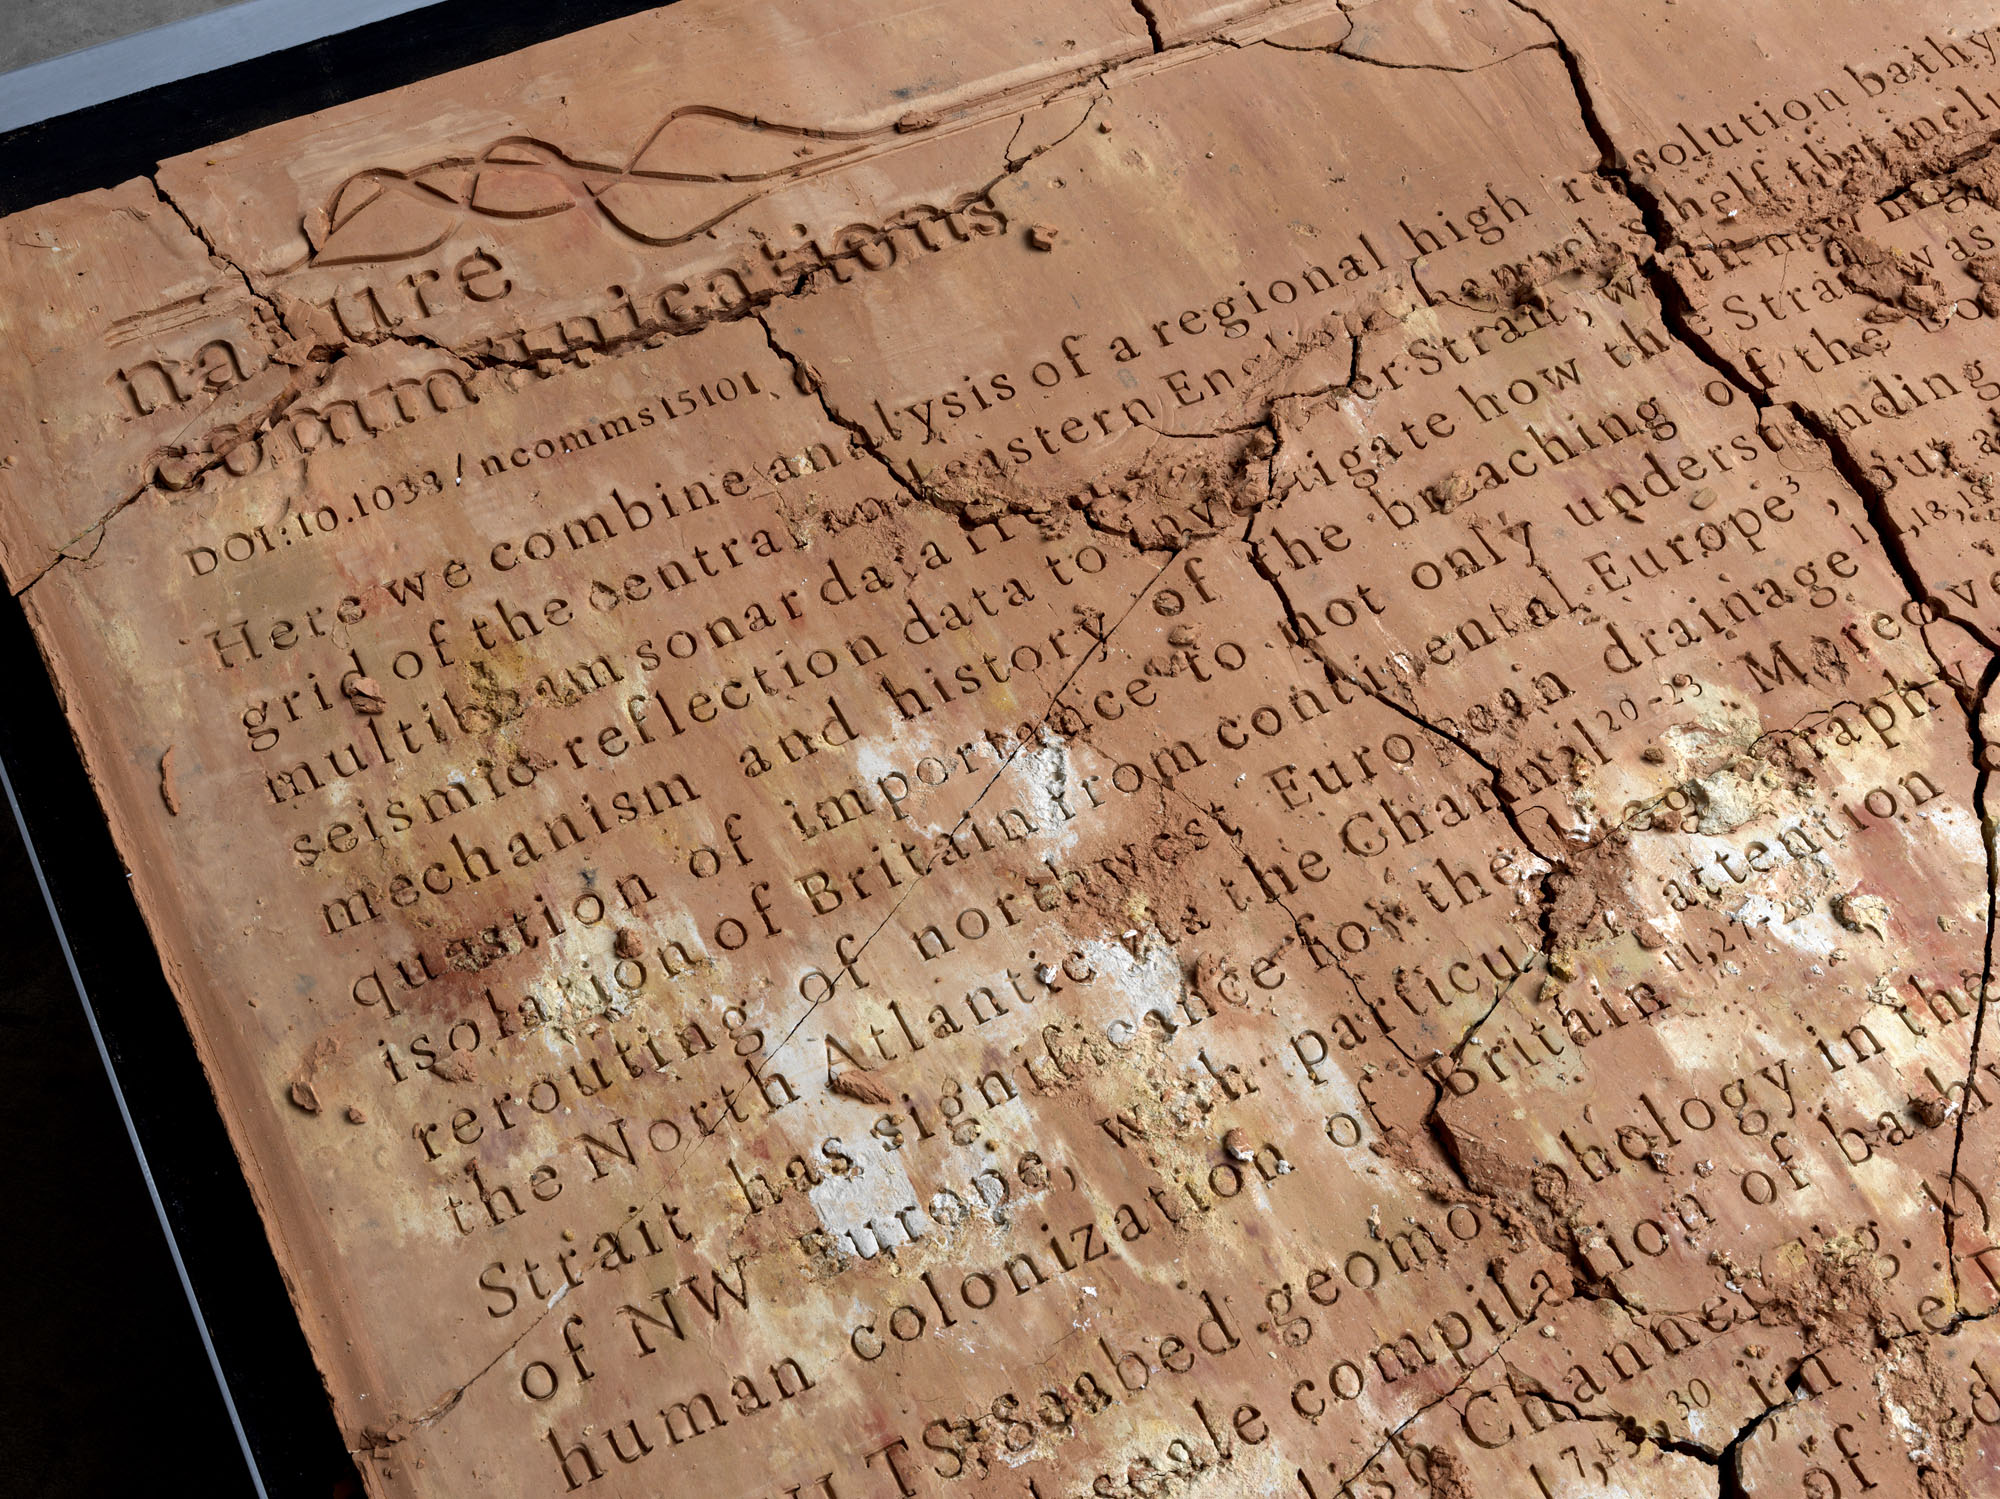 nature
communications
DOI:10.1038/ncomms15101
Here we combine analysis of a regional high resolution
grid of the central and eastern English Channel shelf that
multibeam sonar data from Dover Strait, with new
seismic-reflection data to investigate how the Strait was
mechanism and history of the breaching of the
question of importance to not only understanding
isolation of Britain from continental Europe³, but
rerouting of northwest European drainage
the North Atlantic via the Channel²⁰⁻²³ Moreover
Strait has significance for the
of NW Europe, with attention
human colonization of Britain
Seabed geomorphology in the
scale compilation of
Channel (Fig. 1)
30 in
of